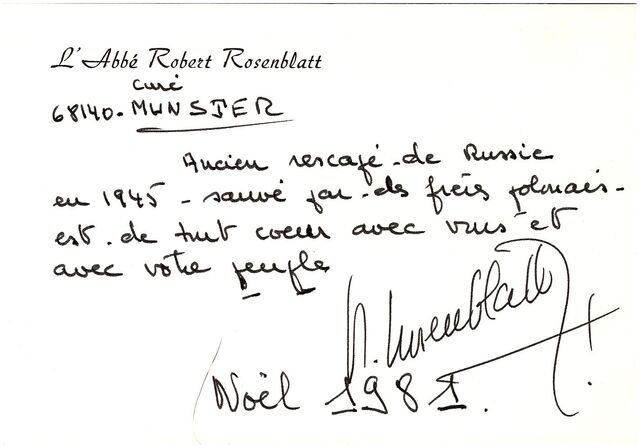 L'Abbé Robert Rosenblatt
curé
68140. MUNSTER
Ancien rescapé de Russie
en 1945 - sauvé par des frères polonais -
est de tout coeur avec vous et
avec votre peuple
R. Rosenblatt
Noël 1981.